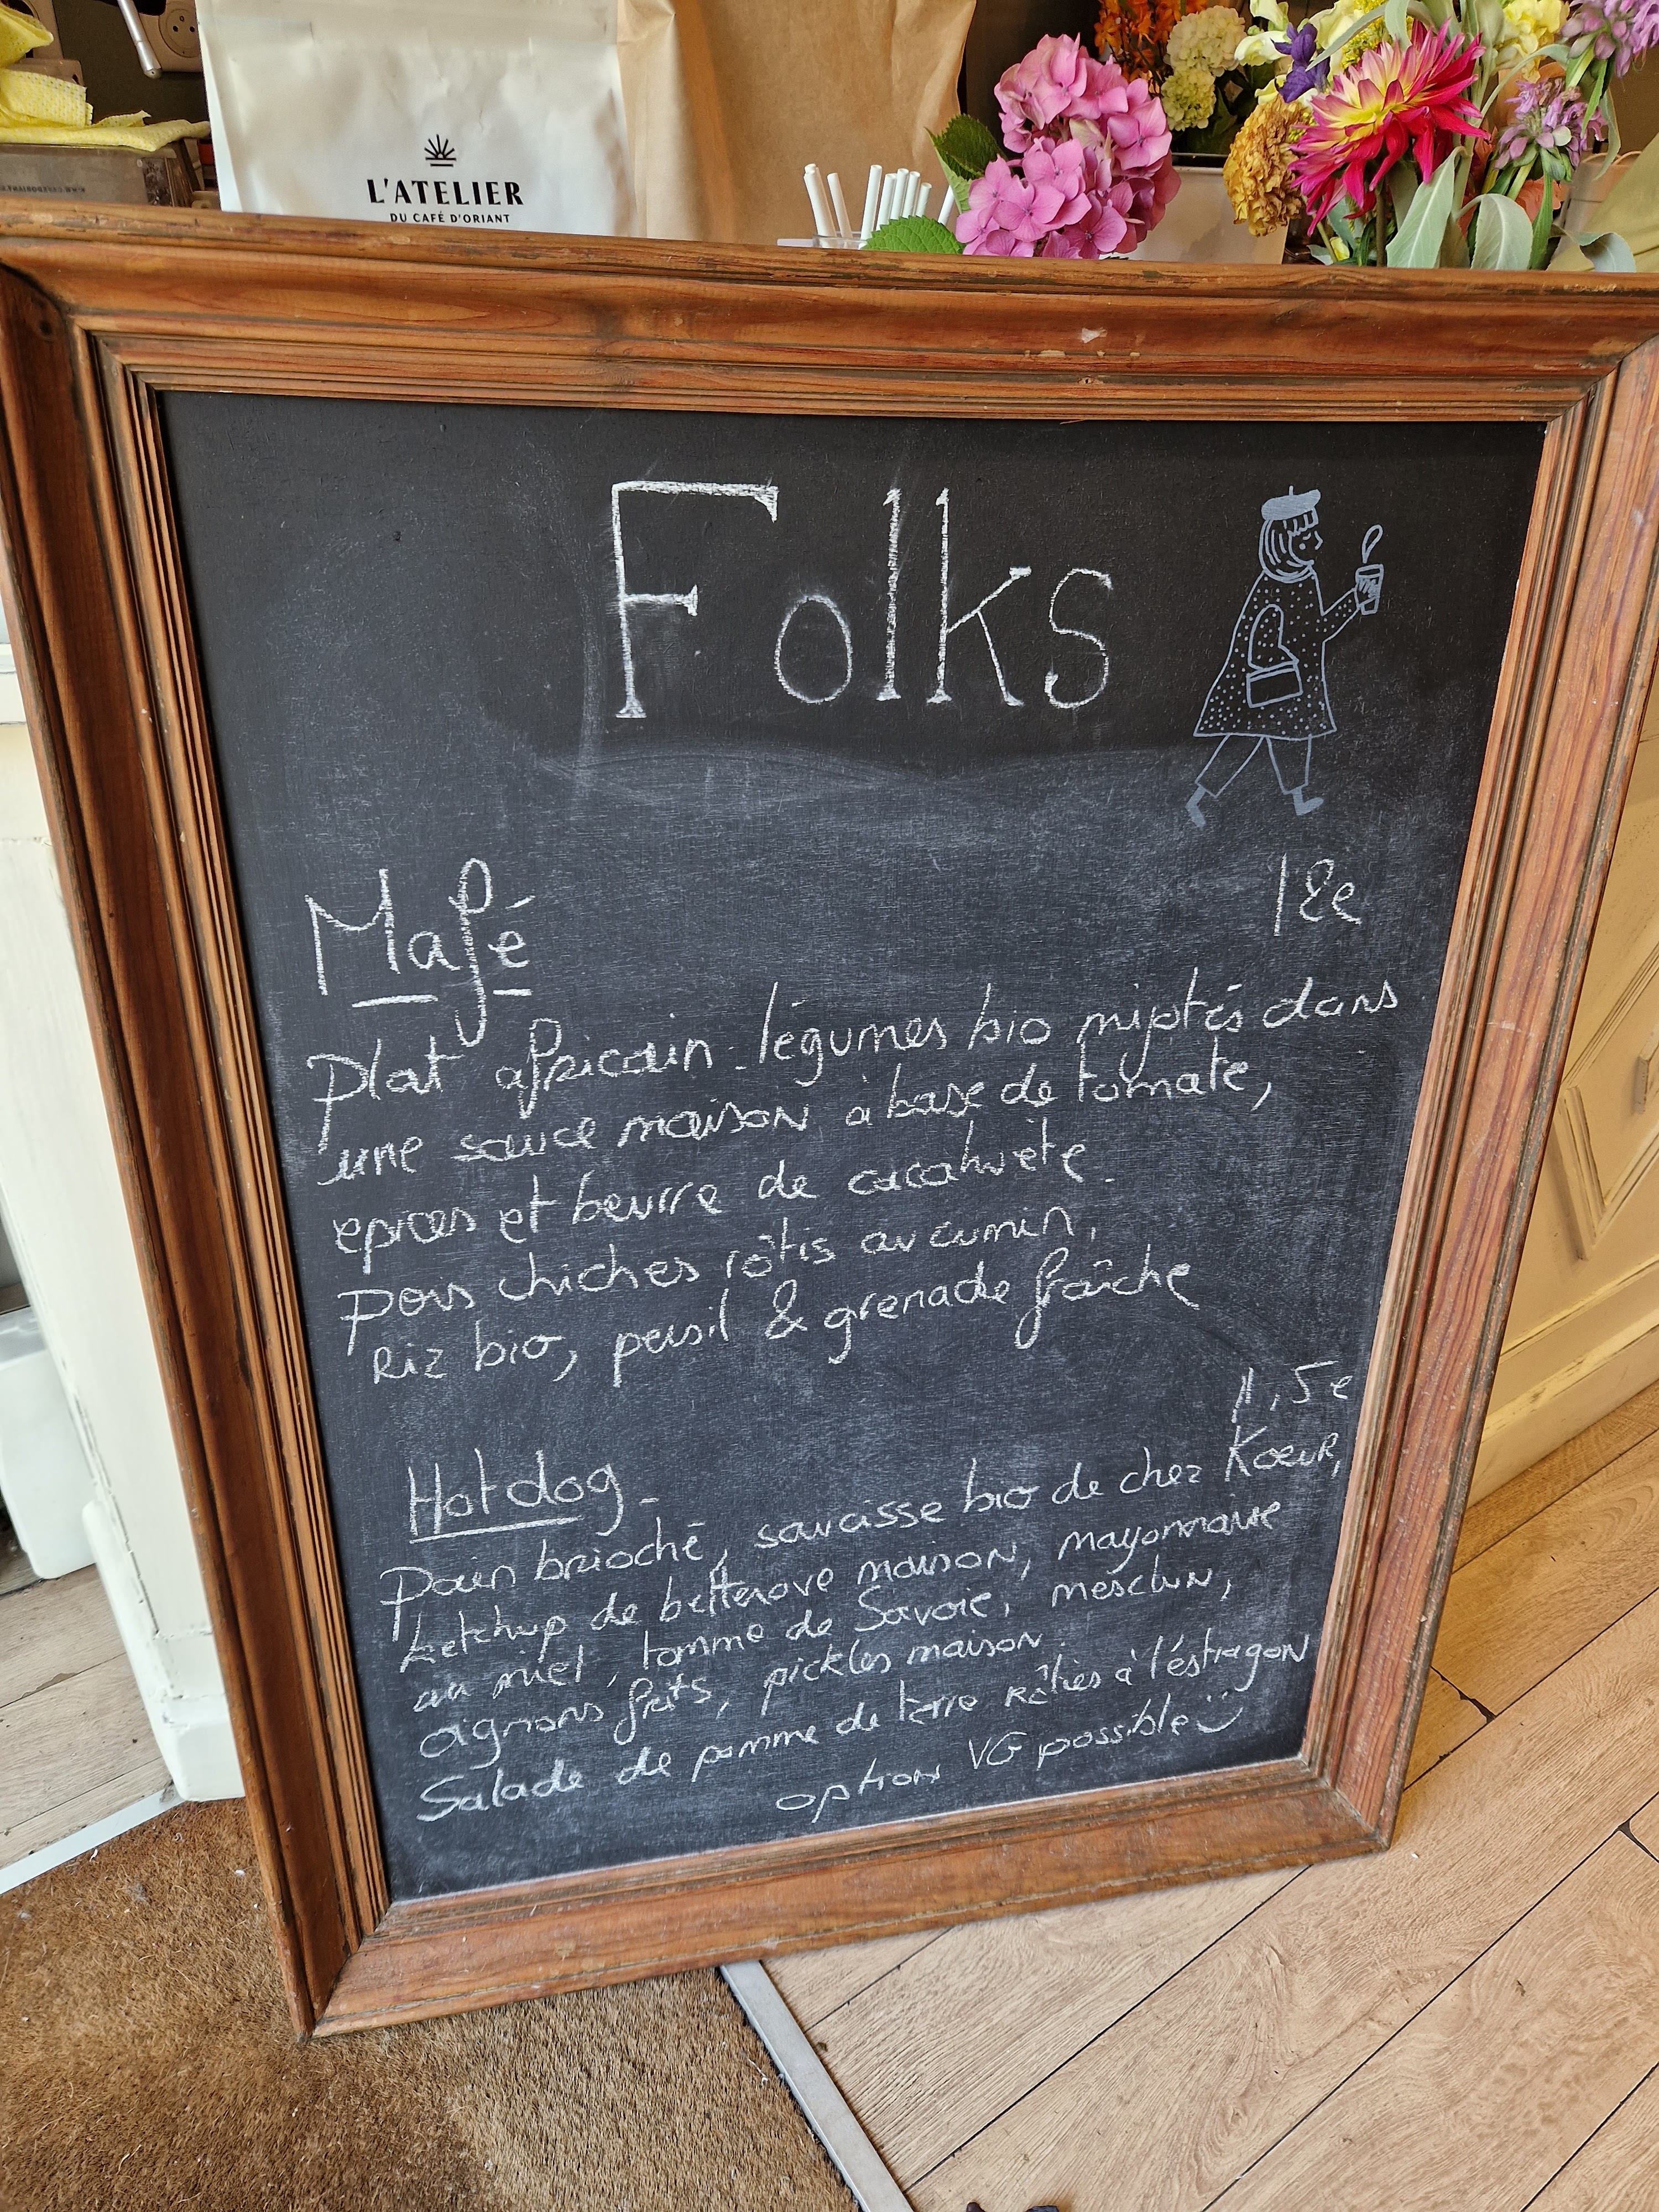 L'ATELIER
DU CAFÉ D'ORIANT
Folks
Mafé
12e
Plat africain. légumes bio mijotés dans
une sauce maison à base de tomate,
epices et beurre de cacahuète.
pois chiches rôtis au cumin,
Riz bio, persil & grenade fraîche
11,5e
Hotdog.
pain brioché, saucisse bio de chez Koeur,
ketchup de betterave maison, mayonnaise
au miel, tomme de Savoie, mesclun,
oignons frits, pickles maison.
Salade de pomme de terre rôties à l'éstragon
option VG possible